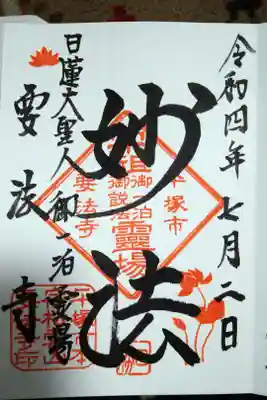 令和四年七月二日
妙法
日蓮大聖人御一泊霊場
要法寺
平塚市
御一泊靈場
御說法
要法寺